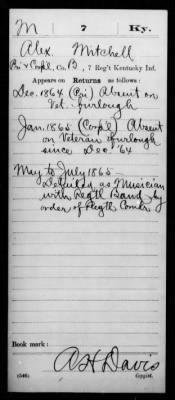 M 7 Ky.
Alex. Mitchell
Pri & Corpl, Co. B, 7 Reg't Kentucky Inf.
Appears on Returns as follows:
Dec. 1864 (Pri) Absent on
Vet. furlough
Jan. 1865 (Corpl) Absent
on Veteran furlough
since Dec. '64
May to July 1865-
Detailed as Musician
with Regtl Band by
order of Regtl Comdr
Book mark:
A H Davis
(546) Copyist.